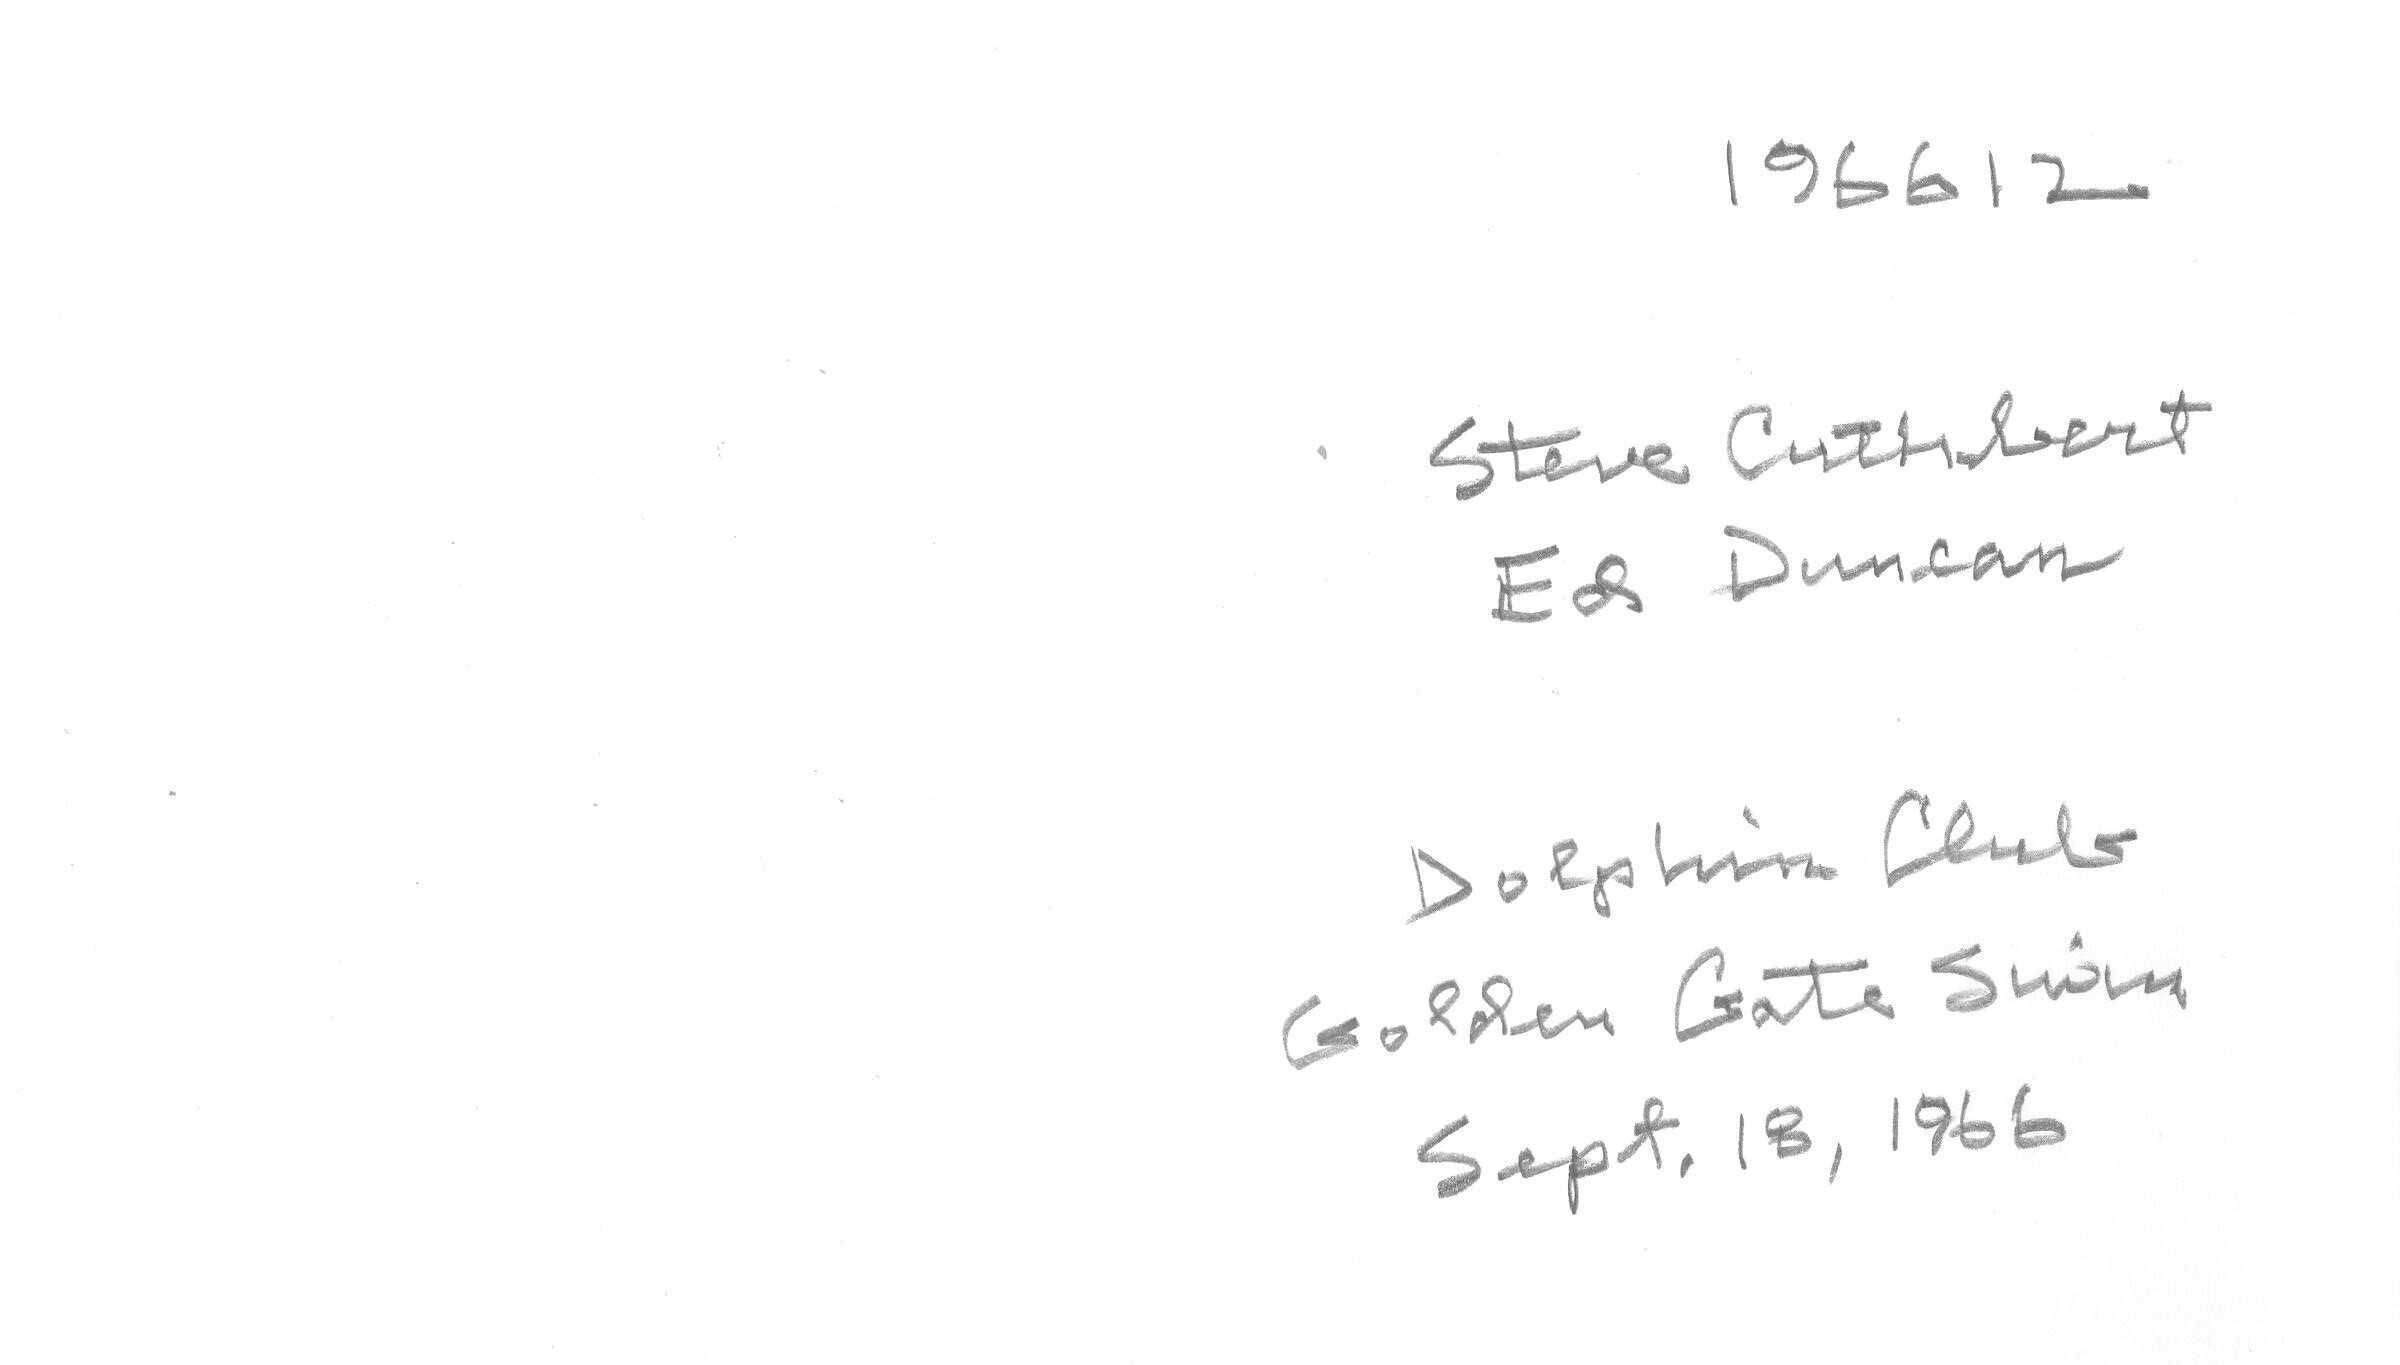 196612
Steve Cuthbert
Ed Duncan
Dolphin Club
Golden Gate Swim
Sept. 18, 1966